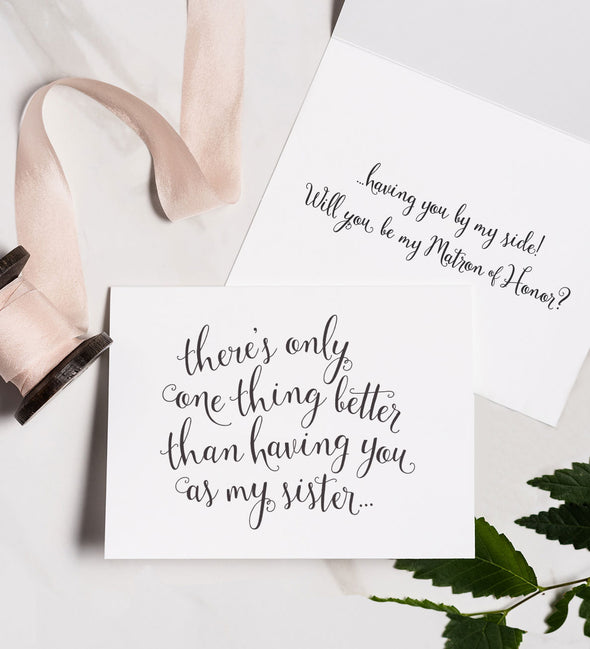 there's only
one thing better
than having you
as my sister...
...having you by my side!
Will you be my Matron of Honor?